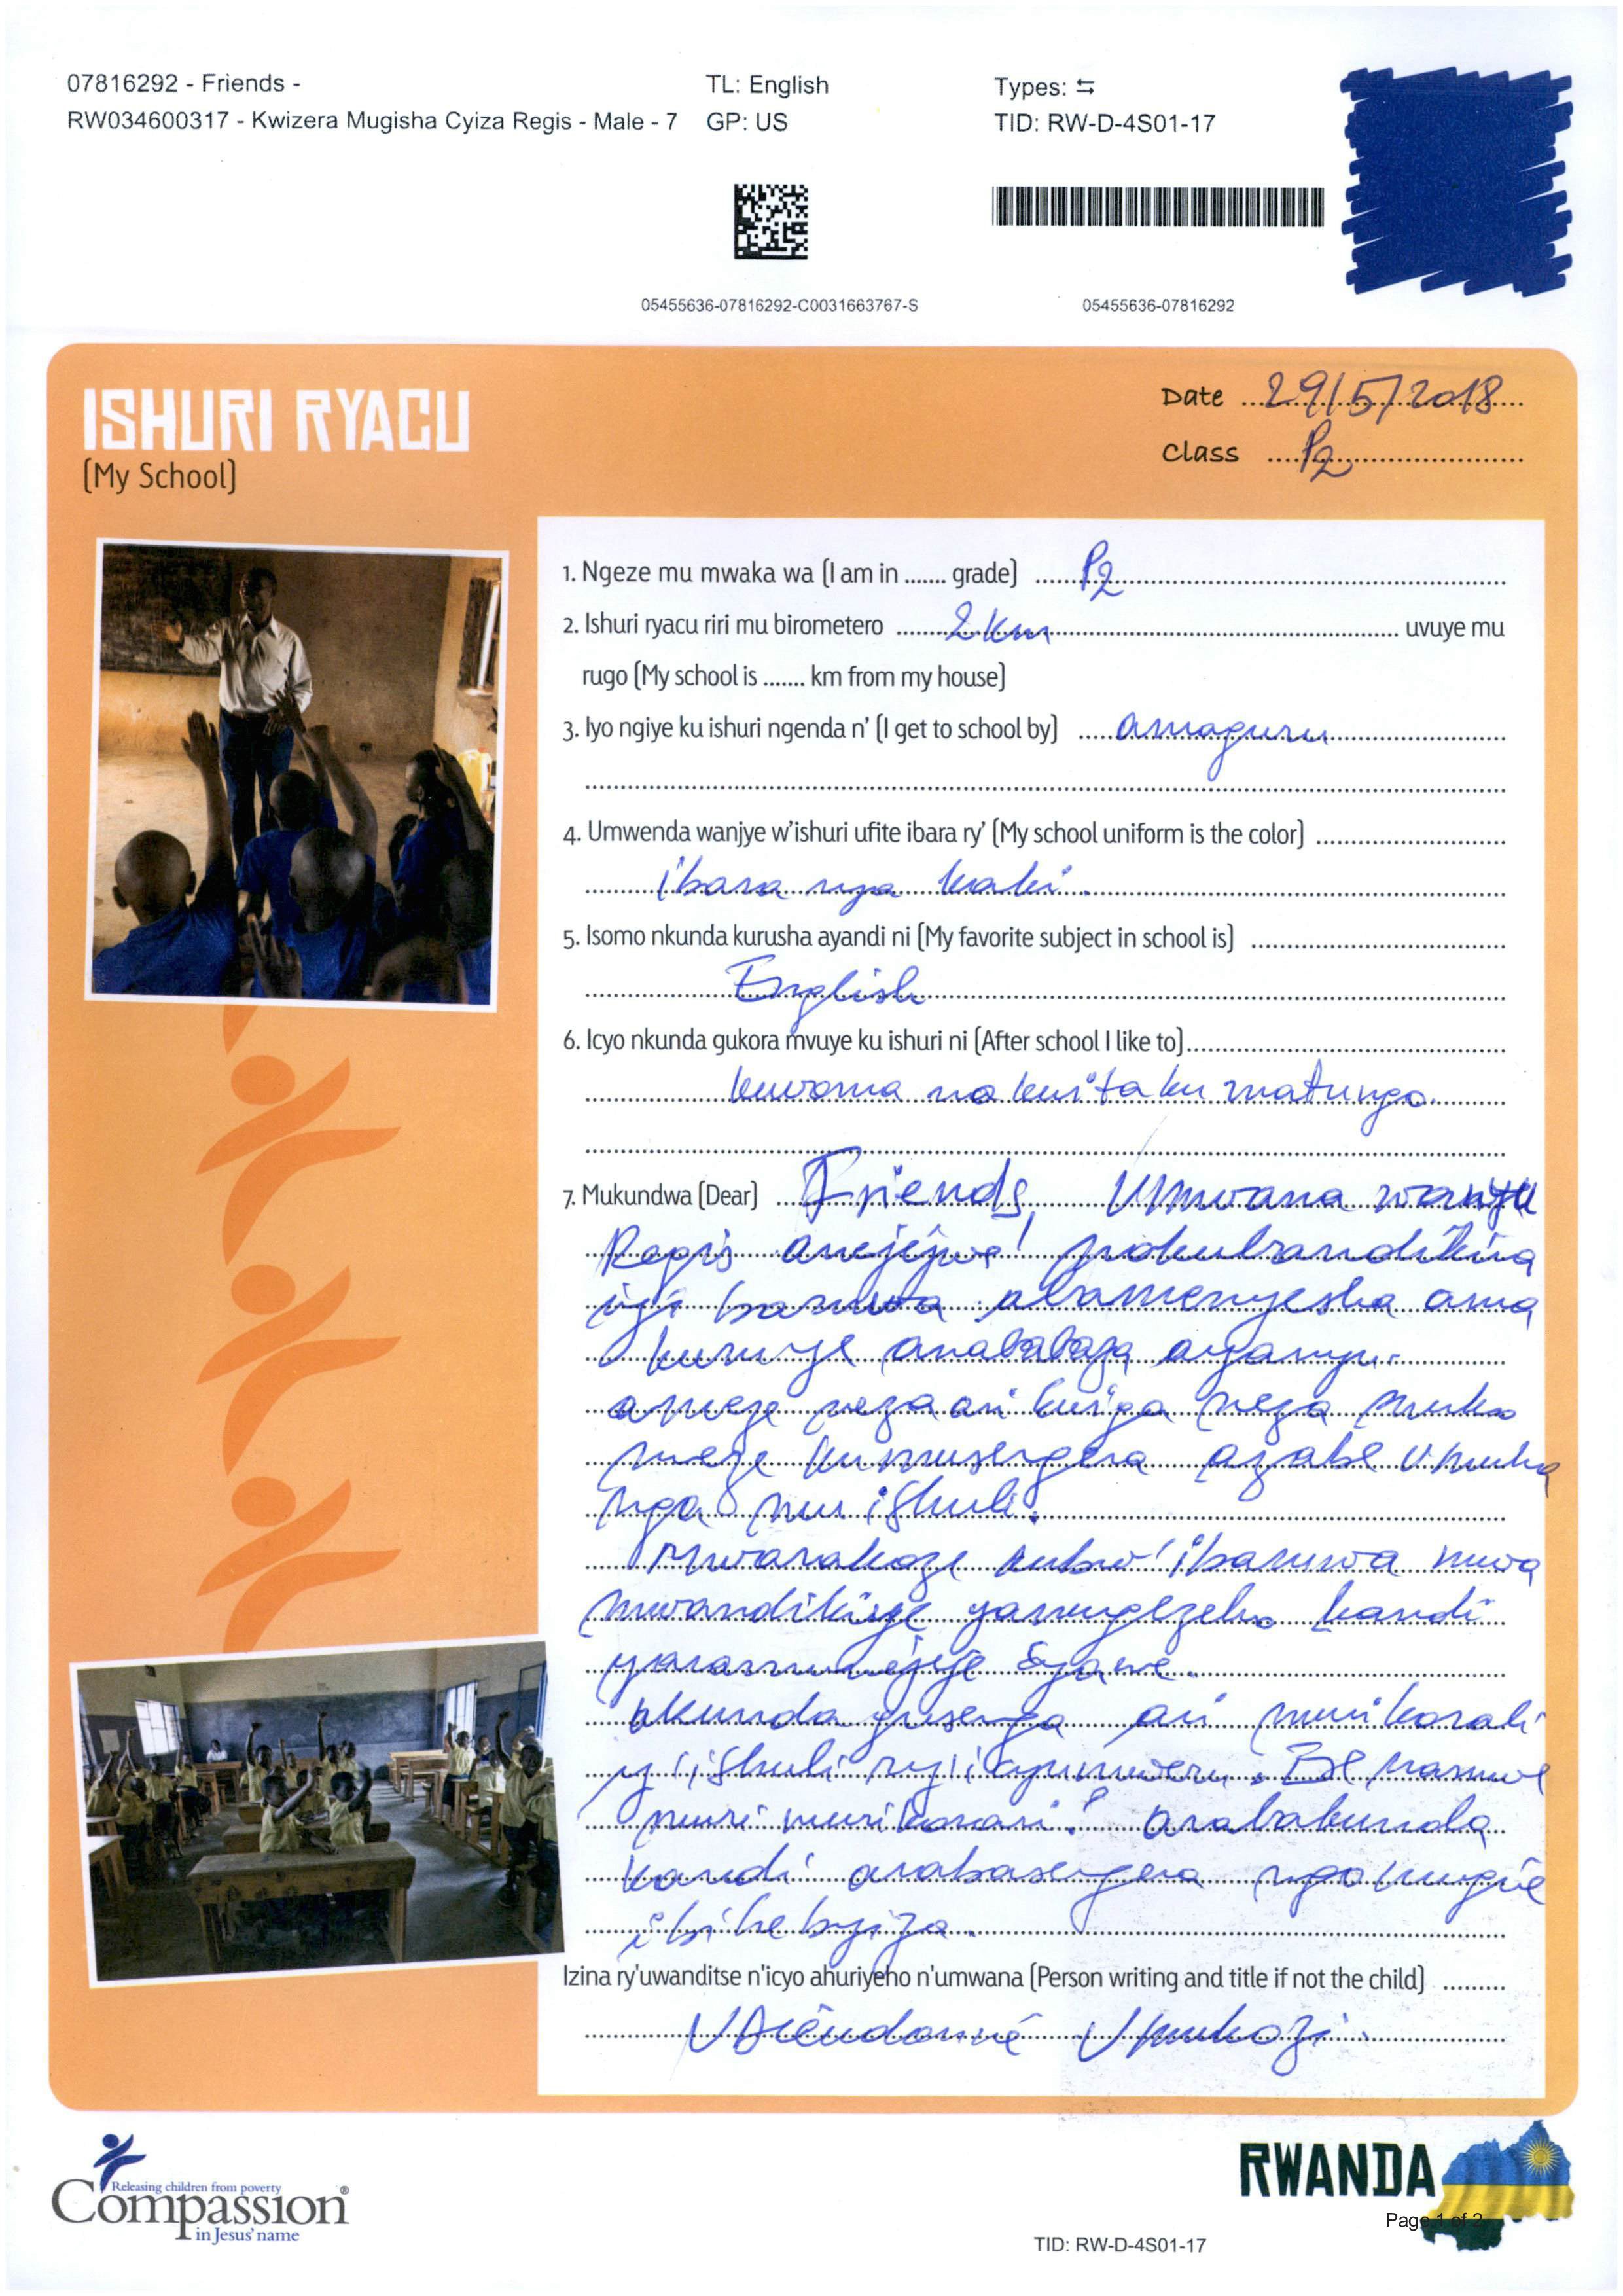 07816292 - Friends -
RW034600317 - Kwizera Mugisha Cyiza Regis - Male - 7
TL: English
GP: US
Types: ⇆
TID: RW-D-4S01-17
05455636-07816292-C0031663767-S
05455636-07816292
ISHURI RYACU
(My School)
Date 29/5/2018
Class P2
1. Ngeze mu mwaka wa (I am in ....... grade) P2
2. Ishuri ryacu riri mu birometero 2 km uvuye mu
rugo (My school is ....... km from my house)
3. Iyo ngiye ku ishuri ngenda n' (I get to school by) amaguru
4. Umwenda wanjye w'ishuri ufite ibara ry' (My school uniform is the color)
ibara rya kaki.
5. Isomo nkunda kurusha ayandi ni (My favorite subject in school is)
English
6. Icyo nkunda gukora mvuye ku ishuri ni (After school I like to)
kuvoma na kwita ku matungo.
7. Mukundwa (Dear) Friends, Umwana wanyu
Regis anejejwe no kubandikira
iyi baruwa abamenyesha ama
kuruye anababaza ayanyu.
ameze neza ari kwiga neza muko
meze kumusengera azabe umuha
nga mu ishuli.
Mwarakoze kubw' ibaruwa mwa
mwandikiye yamugezeho kandi
yaramunejeje cyane.
akunda gusenga ari muri korali
y' ishuli ryi icyumweru. Ese namwe
muri muri korari? arabakunda
kandi arabasengera ngo mugire
ibihe byiza.
Izina ry'uwanditse n'icyo ahuriyeho n'umwana (Person writing and title if not the child)
Dieudonné Umukozi.
Releasing children from poverty
Compassion®
in Jesus' name
RWANDA
Page 1 of 2
TID: RW-D-4S01-17